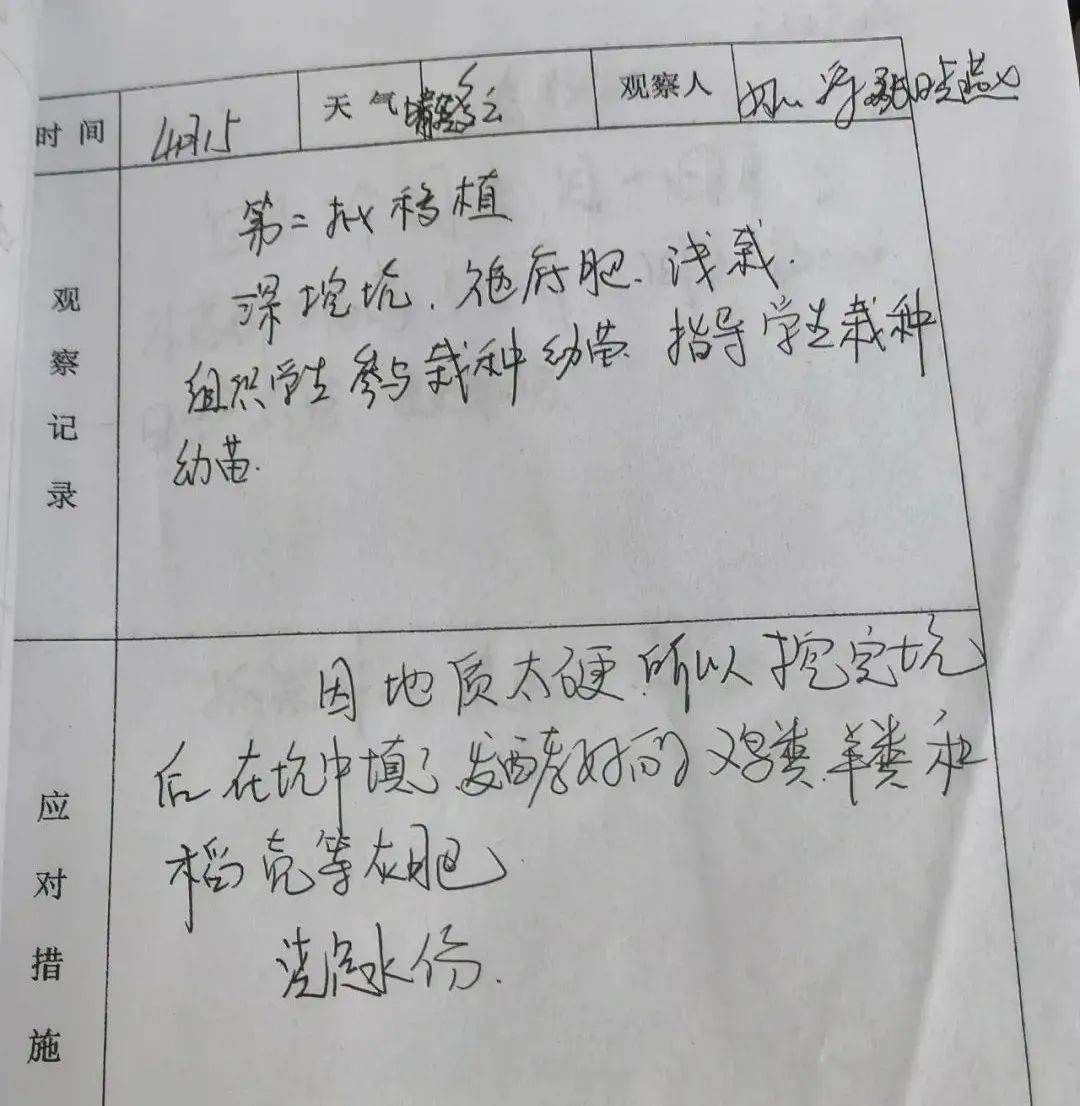 时间 4月15 天气 多云 观察人
观察记录
第二批移植
深挖坑、施底肥、浅栽.
组织学生参与栽种幼苗、指导学生栽种
幼苗.
应对措施
因地质太硬.所以挖完坑
后在坑中填了发酵好的鸡粪.羊粪和
稻壳等农肥
浇足水份.